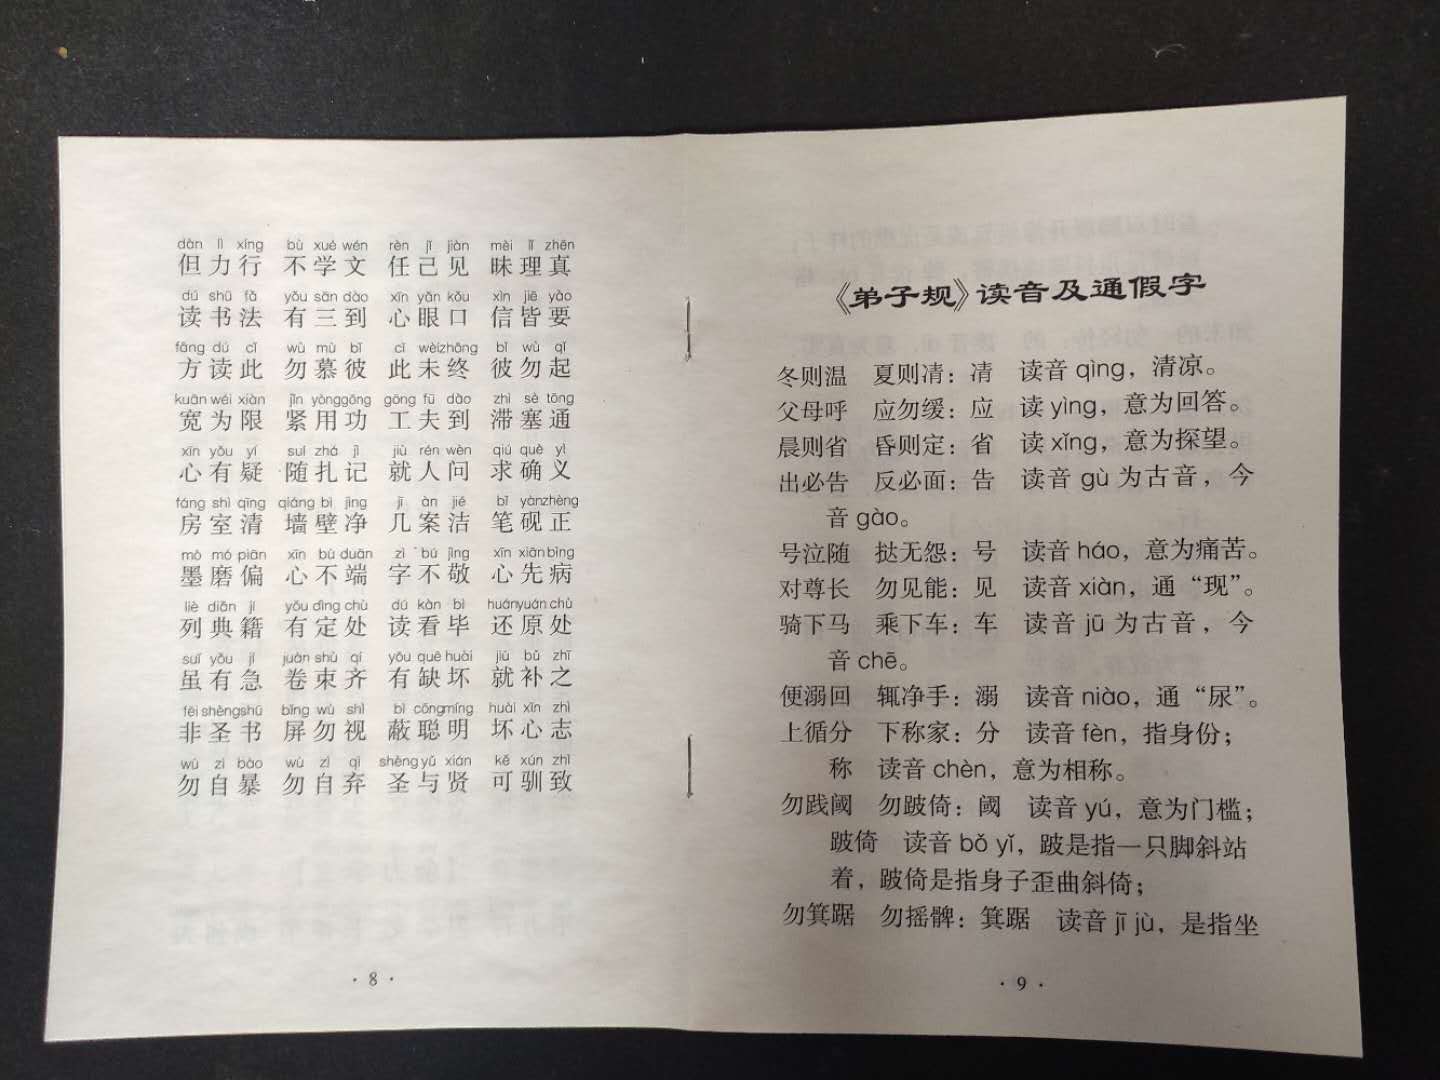 dàn lì xíng bù xué wén rèn jǐ jiàn mèi lǐ zhēn
但力行 不学文 任己见 昧理真
dú shū fǎ yǒu sān dào xīn yǎn kǒu xìn jiē yào
读书法 有三到 心眼口 信皆要
fāng dú cǐ wù mù bǐ cǐ wèi zhōng bǐ wù qǐ
方读此 勿慕彼 此未终 彼勿起
kuān wéi xiàn jǐn yòng gōng gōng fū dào zhì sè tōng
宽为限 紧用功 工夫到 滞塞通
xīn yǒu yí suí zhá jì jiù rén wèn qiú què yì
心有疑 随扎记 就人问 求确义
fáng shì qīng qiáng bì jìng jī àn jié bǐ yàn zhèng
房室清 墙壁净 几案洁 笔砚正
mò mó piān xīn bù duān zì bú jìng xīn xiān bìng
墨磨偏 心不端 字不敬 心先病
liè diǎn jí yǒu dìng chù dú kàn bì huán yuán chù
列典籍 有定处 读看毕 还原处
suī yǒu jí juàn shù qí yǒu quē huài jiù bǔ zhī
虽有急 卷束齐 有缺坏 就补之
fēi shèng shū bǐng wù shì bì cōng míng huài xīn zhì
非圣书 屏勿视 蔽聪明 坏心志
wù zì bào wù zì qì shèng yǔ xián kě xún zhì
勿自暴 勿自弃 圣与贤 可驯致
· 8 ·
《弟子规》读音及通假字
冬则温 夏则凊：凊 读音 qìng，清凉。
父母呼 应勿缓：应 读 yìng，意为回答。
晨则省 昏则定：省 读 xǐng，意为探望。
出必告 反必面：告 读音 gù 为古音，今
音 gào。
号泣随 挞无怨：号 读音 háo，意为痛苦。
对尊长 勿见能：见 读音 xiàn，通“现”。
骑下马 乘下车：车 读音 jū 为古音，今
音 chē。
便溺回 辄净手：溺 读音 niào，通“尿”。
上循分 下称家：分 读音 fèn，指身份；
称 读音 chèn，意为相称。
勿践阈 勿跛倚：阈 读音 yú，意为门槛；
跛倚 读音 bǒ yǐ，跛是指一只脚斜站
着，跛倚是指身子歪曲斜倚；
勿箕踞 勿摇髀：箕踞 读音 jī jù，是指坐
· 9 ·